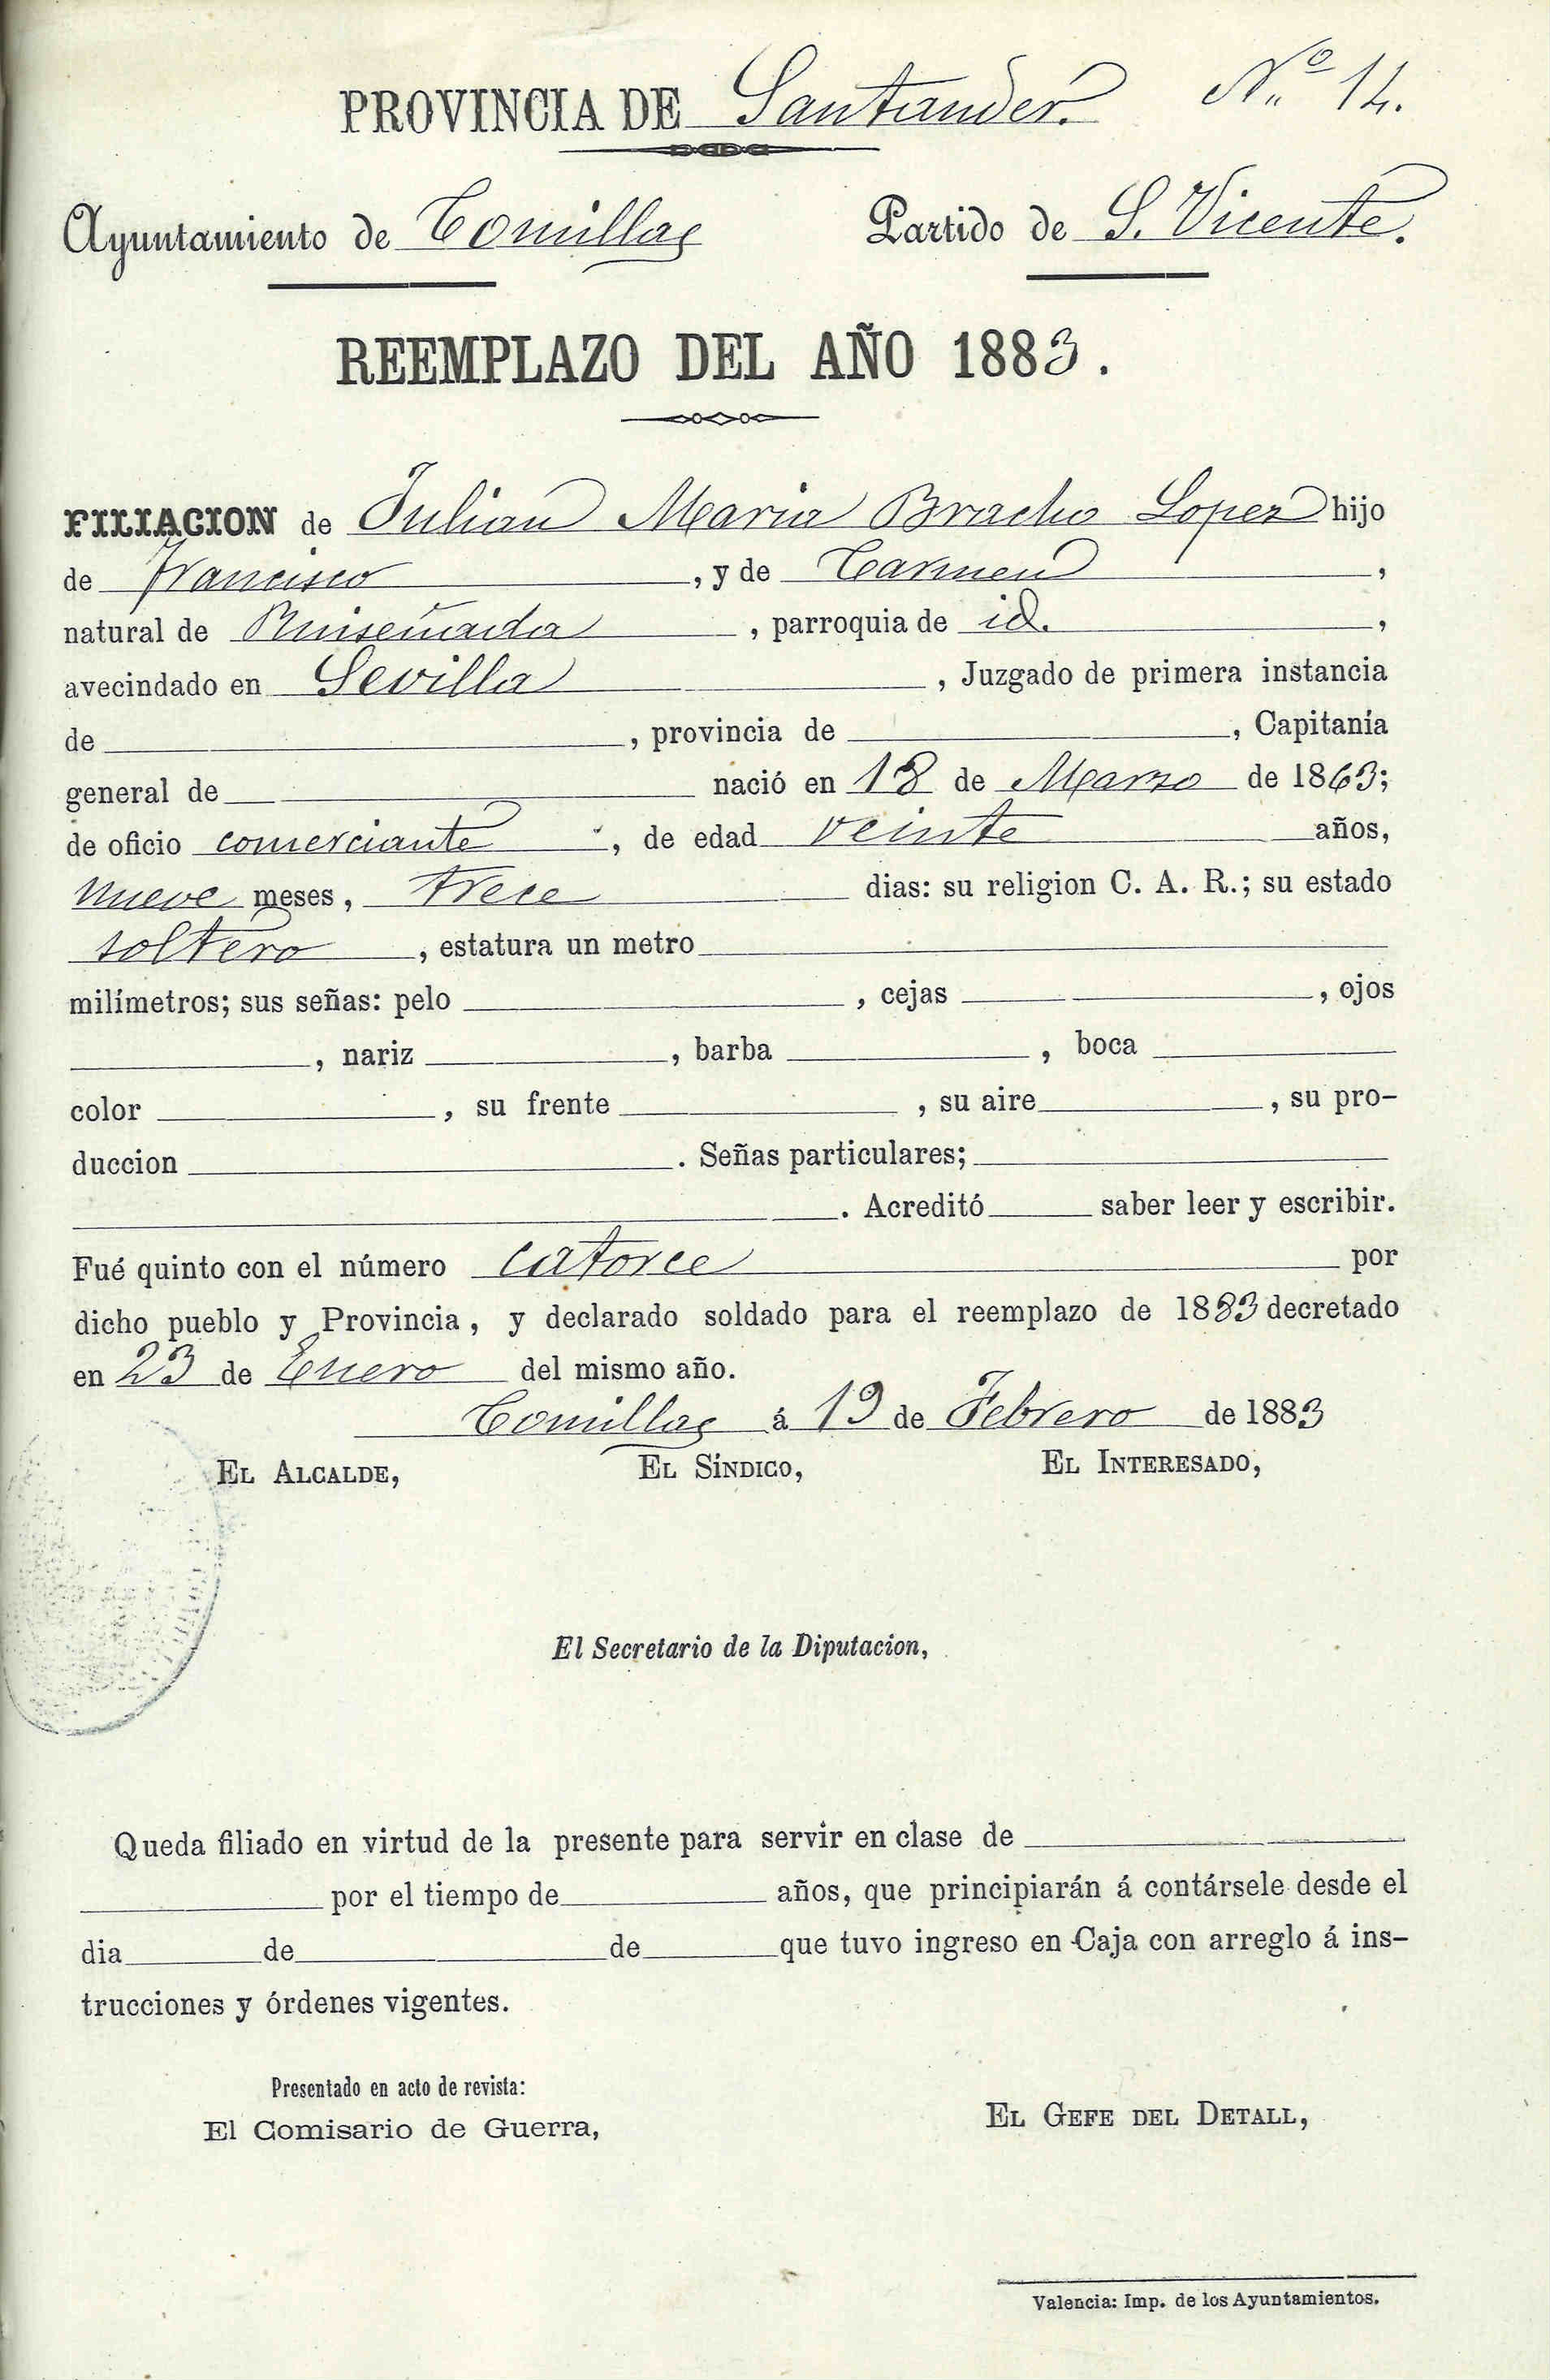 PROVINCIA DE Santander. Nº 14.
Ayuntamiento de Comillas Partido de S. Vicente.
REEMPLAZO DEL AÑO 1883.
FILIACION de Julian Maria Bracho Lopez hijo
de Francisco, y de Carmen,
natural de Ruiseñada, parroquia de id.,
avecindado en Sevilla, Juzgado de primera instancia
de , provincia de , Capitanía
general de nació en 18 de Marzo de 1863;
de oficio comerciante, de edad veinte años,
nueve meses, trece dias: su religion C. A. R.; su estado
soltero, estatura un metro
milímetros; sus señas: pelo , cejas , ojos
, nariz , barba , boca
color , su frente , su aire , su pro-
duccion . Señas particulares;
. Acreditó saber leer y escribir.
Fué quinto con el número catorce por
dicho pueblo y Provincia, y declarado soldado para el reemplazo de 1883 decretado
en 23 de Enero del mismo año.
Comillas á 19 de Febrero de 1883
EL ALCALDE, EL SÍNDICO, EL INTERESADO,
El Secretario de la Diputacion,
Queda filiado en virtud de la presente para servir en clase de
por el tiempo de años, que principiarán á contársele desde el
dia de de que tuvo ingreso en Caja con arreglo á ins-
trucciones y órdenes vigentes.
Presentado en acto de revista:
El Comisario de Guerra, EL GEFE DEL DETALL,
Valencia: Imp. de los Ayuntamientos.